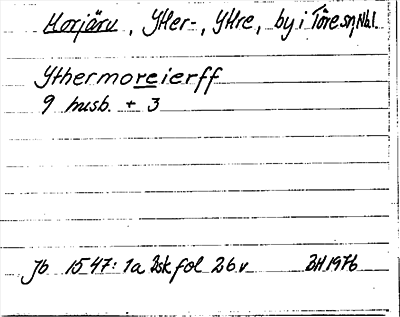 Morjärv, Ytter-, Yttre, by i Töre sn, Nbl.
Ythermoreierff
9 husb. + 3
Jb 1547: 1a Bsk fol 26 v BH 1976